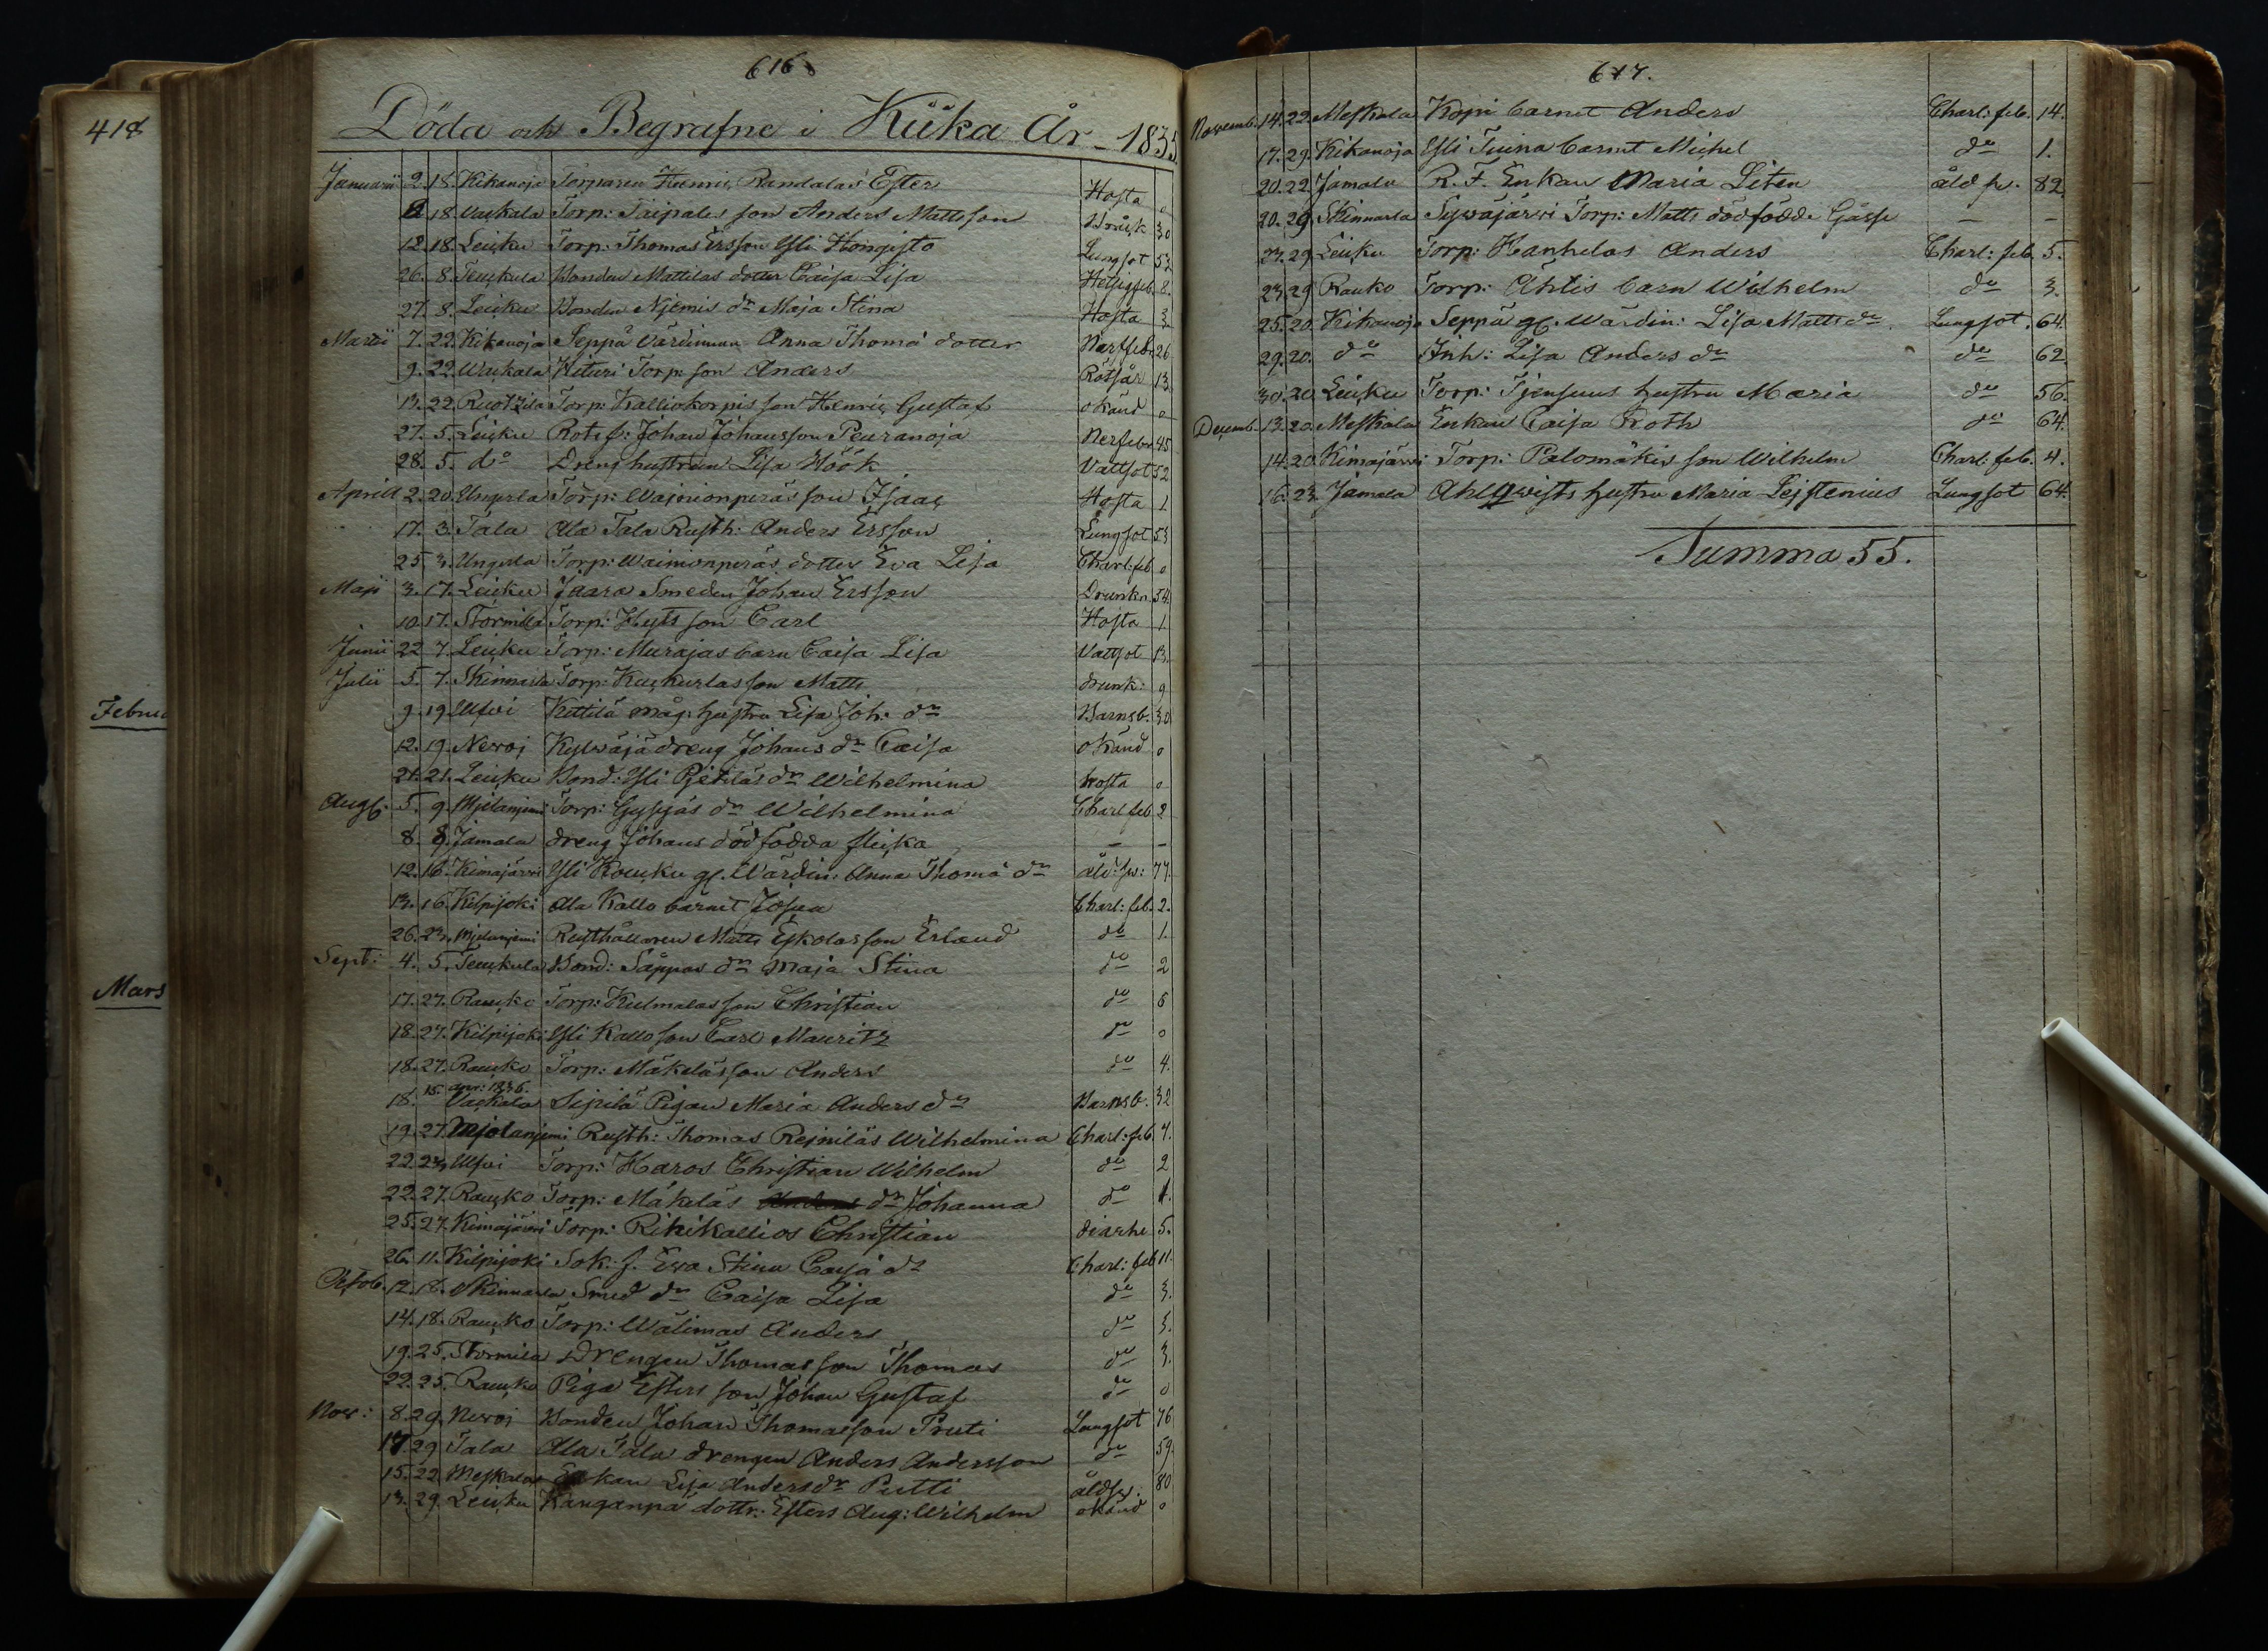 418
Februa
Mars
616
Döda och Begrafne i Kiika År 1835
Januarii 2. 18. Kikanoja Torparen Henric Randalas Ester Hosta 0
8. 18. Vaskala Torp: Taipales son Anders Mattsson Drunk 30
12. 18. Leuku Torp: Thomas Ersson Yli Hongisto Lungsot 53
26. 8. Teuckula Bonden Mattilas dotter Caisa Lisa Hetsigfeb. 8.
27. 8. Leuku Bonden Njemis dr Maja Stina Hosta 3
Martii 7. 22. Kikanoja Seppä värdinnan Anna Thomä dotter Nerffeb. 26
9. 22. Waskala Hituri Torp: son Anders Rötsår 13.
13. 22. Ruotzila Torp: Kalliokorpis son Henric Gustaf okänd 0
27. 5. Leuku Rotef: Johan Johansson Peuranoja Nerffeb. 45
28. 5. do Dreng hustrun Lisa Höök Vattsot 52
Aprill 2. 20. Ungerla Torp: Wajnionperäs son Isaac Hosta 1
17. 3. Tala Ala Tala Rusth: Anders Ersson Lungsot 53
25. 3. Ungerla Torp: Wainionperäs dotter Eva Lisa Charl: feb 0
Maji 3. 17. Leuku Jaara Smeden Johan Ersson Drunkn 54.
10. 17. Stormila Torp: Hyts son Carl Hosta 1
Junii 22 7. Leuku Torp: Murajas barn Caisa Lisa Vattsot 13.
Julii 5. 7. Skinnarla Torp: Kuckurlas son Matts drunk: 9
9. 19 Ulfvi Kittilä måg: hustru Lisa Joh: dr Barnsb. 30
12. 19. Newoj Kylwäjä dreng Johans dr Caisa okänd 0
21. 21. Leuku Bond: Yli Pjetiläs dr Wilhelmina hosta 0
Aug. 5. 9. Mjelanjemi Torp: Gysyjäs dr Wilhelmina Charl feb 2
8. 9. Jamala dreng Johans dödfödda flicka — —
12. 16. Kimajärvi Yli Houcku gl. Wärdin: Anna Thomä dr åld: sv: 77.
13. 16. Kilpijoki Ala Kallo barnet Josua Charl: feb. 2.
26. 23. Mjelanjemi Rusthållaren Matts Eskolas son Erland do 1.
Sept: 4. 5. Teuckula Bond: Säppas dr Maja Stina do 2
17. 27. Raucko Torp: Kulmalas son Christian do 6
18. 27. Kilpijoki Yli Kallo son Carl Mauritz do 0
18. 27. Raucko Torp: Mäkeläs son Anders do 4.
18. 15. apr: 1836. Vaskala Sipilä Pigan Maria Anders dr Barnsb. 32
19. 27. Mjelanjemi Rusth: Thomas Rejniläs Wilhelmina Charl: feb. 7.
22. 27. Ulfvi Torp: Haros Christian Wilhelm do 2
22. 27. Raucko Torp: Mäkeläs dr Johanna do 1.
25. 27. Kimajärvi Torp: Rikikallios Christian diarhe 5.
26. 11. Kilpijoki Sok: f. Eva Stina Caisä dr Charl: feb 11.
Octob. 12. 18. Skinnarla Smed dr Caisa Lisa do 3.
14. 18. Raucko Torp: Wälimas Anders do 3.
19. 25. Stormila Drengen Thomas son Thomas do 3.
22. 25. Raucko Piga Esters son Johan Gustaf do 0
Nov: 8. 29. Newoj Bonden Johan Thomasson Pruti Lungsot 76
17. 29 Tala Ala Tala drengen Anders Andersson do 59.
15. 22. Meskala Enkan Lisa Anders dr Putti åldsv. 80
13. 29. Leuku Kanganpä dottr: Esters Aug: Wilhelm okänd 0
617.
Novemb. 14. 22. Meskala Kopi barnet Anders Charl: feb. 14.
17. 29. Kikanoja Yli Tuina barnet Michel do 1.
20. 22. Jamala R. F. Enkan Maria Liten åld sv. 82
20. 29. Skinnarla Sywäjärvi Torp: Matts dödfödde Gåsse — —
23. 29. Leuku Torp: Hanhelas Anders Charl: feb. 5.
23. 29 Rauko Torp: Ahtis barn Wilhelm do 3.
25. 20. Kikanoja Seppä gl. Wärdin: Lisa Matts dr Lungsot. 64.
29. 20. do Inh: Lisa Anders dr do 62.
30. 20. Leuku Torp: Tjensuus hustru Maria do 56.
Decemb. 13. 20. Meskala Enkan Caisa Roth do 64.
14. 20. Kimajärvi Torp: Palomäkis son Wilhelm Charl: feb. 4.
16. 23. Jamala Ahlqwists hustru Maria Lejstenius Lungsot 64.
Summa 55.